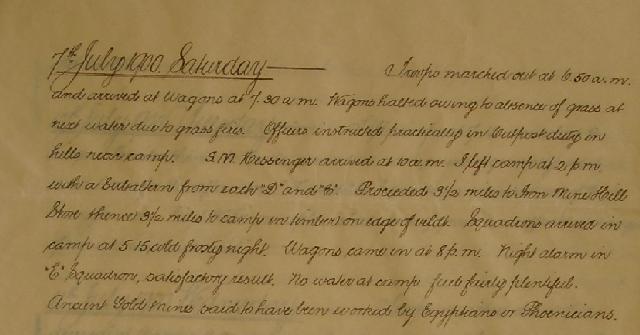 7th July 1900. Saturday — Troops marched out at 6.50 a.m.
and arrived at Wagons at 7.30 a.m. Wagons halted owing to absence of grass at
next water due to grass fires. Officers instructed practically in Outpost duty in
hills near camp. S.M. Messenger arrived at 10 a.m. I left camp at 2 p.m.
with a Subaltern from each "D" and "E". Proceeded 3½ miles to Iron Mine Hill
Store thence 3½ miles to camp in timber on edge of veldt. Squadrons arrived in
camp at 5.15 cold frosty night. Wagons came in at 8 p.m. Night alarm in
"E" Squadron, satisfactory result. No water at camp fuel fairly plentiful.
Ancient Gold mines said to have been worked by Egyptians or Phoenicians.